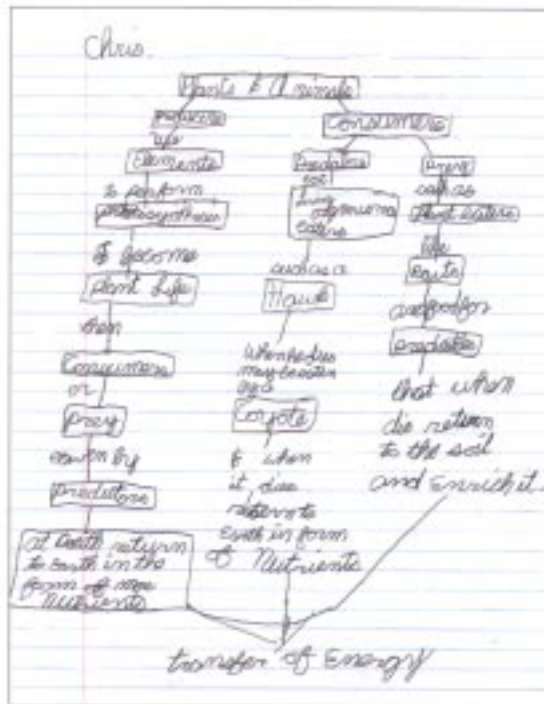 Chris.
Plants & Animals
Producers
use
Elements
to perform
photosynthesis
to become
Plant Life
then
Consumers
or
prey
eaten by
Predators
at Death return
to Earth in the
form of more
Nutrients
Consumers
Predators
eat
Living
organisms
eaters
such as a
Hawk
when he dies
may be eaten
by a
Coyote
& when
it dies
returns to
Earth in form
of Nutrients
Prey
such as
Plant eaters
like
are food for
predators
that when
die return
to the soil
and Enrich it.
transfer of Energy